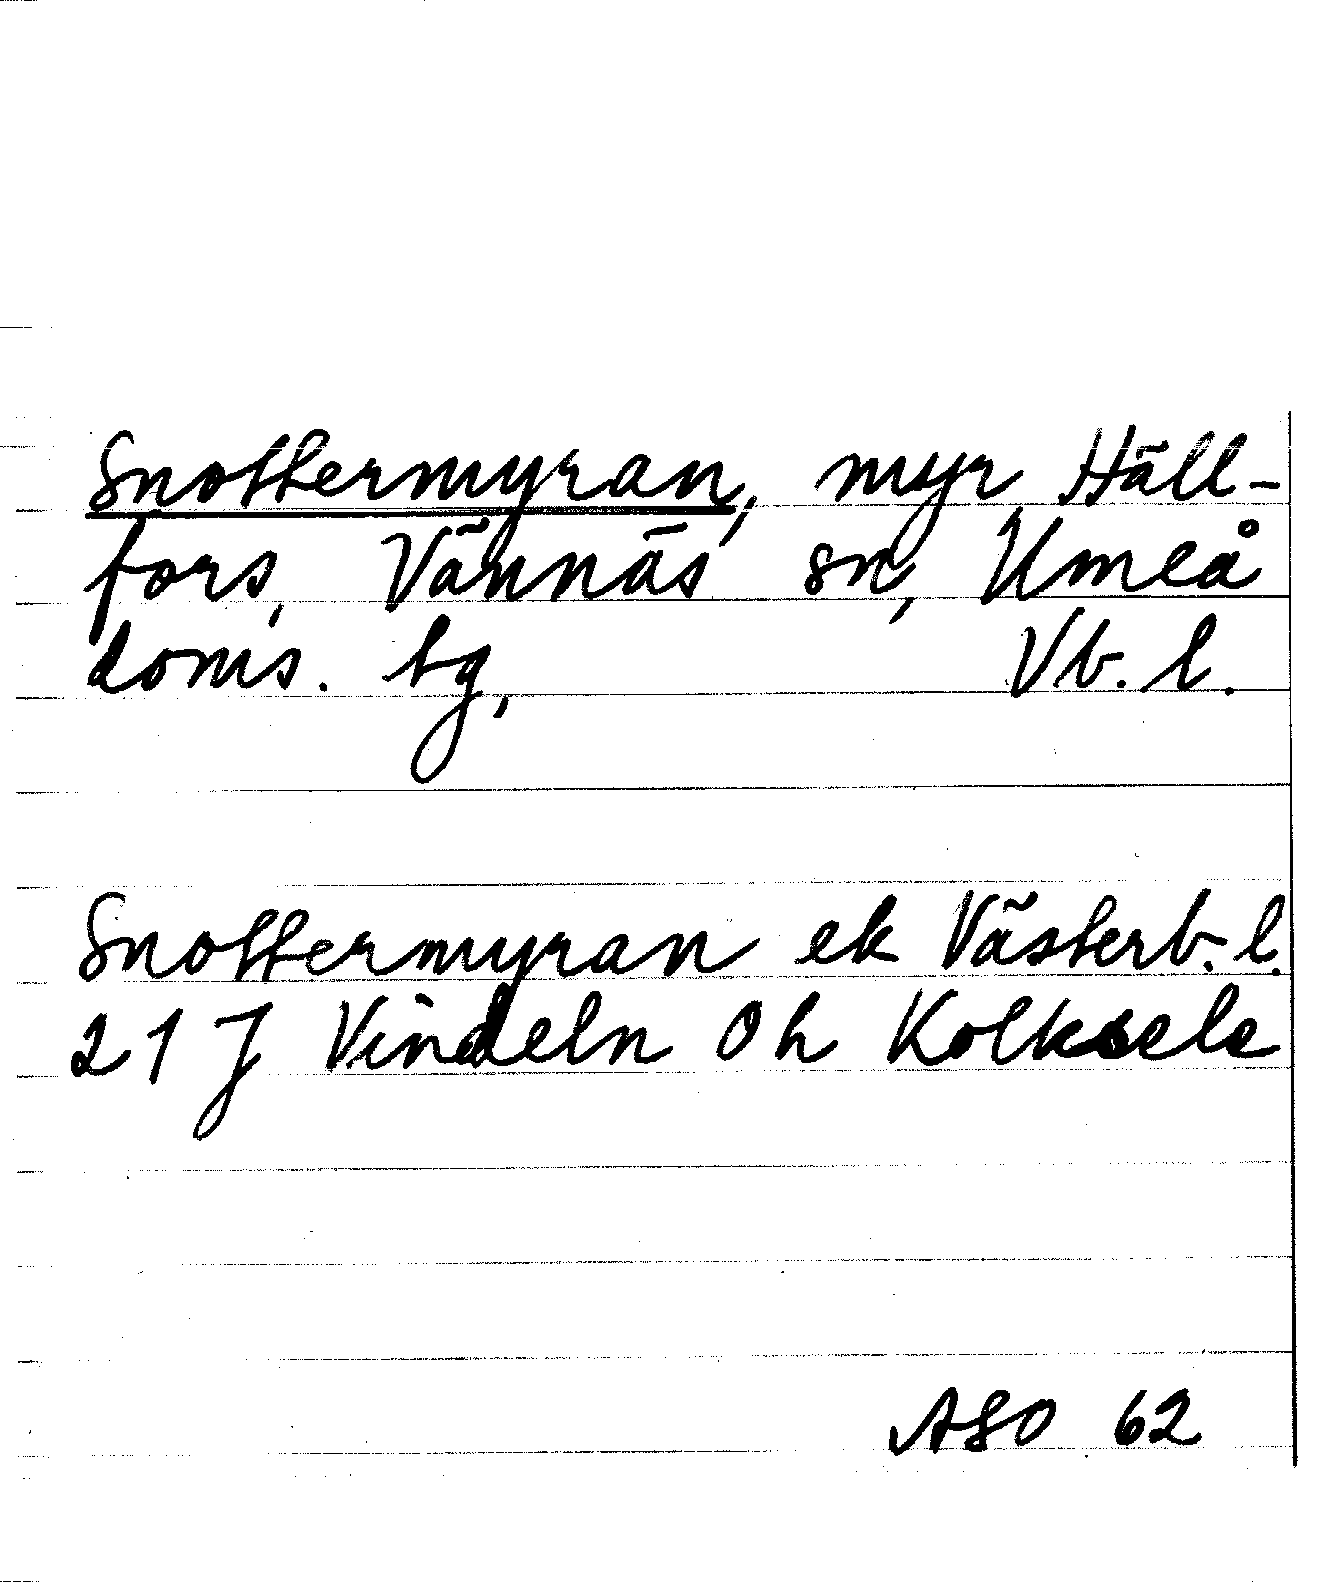 Snottermyran, myr Häll-
fors, Vännäs sn, Umeå
doms. tg, Vb. l.
Snottermyran ek Västerb. l.
21 J Vindeln Oh Kolksele
ASO 62